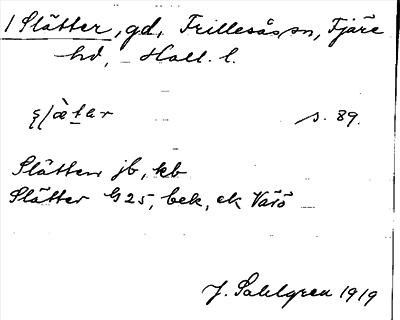 1 Slätter, gd, Frillesås sn, Fjäre
hd, Hall. l.
s. 89.
Slätten jb, kb
Slätter G 25, bek, ek Värö
J. Sahlgren 1919